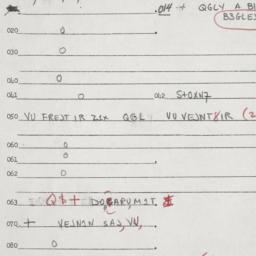 .014 + QGLY A BI
B3GLES
020 0 .
030 0
040 0
041 0 042 S+OXN7
050 VU FREJT IR 21X QBL VU VEJNT IR (2
060 0
061 0 .
062 0
063 Q$+ DO
070 + VEJN1N SAJ, VV, .
080 0